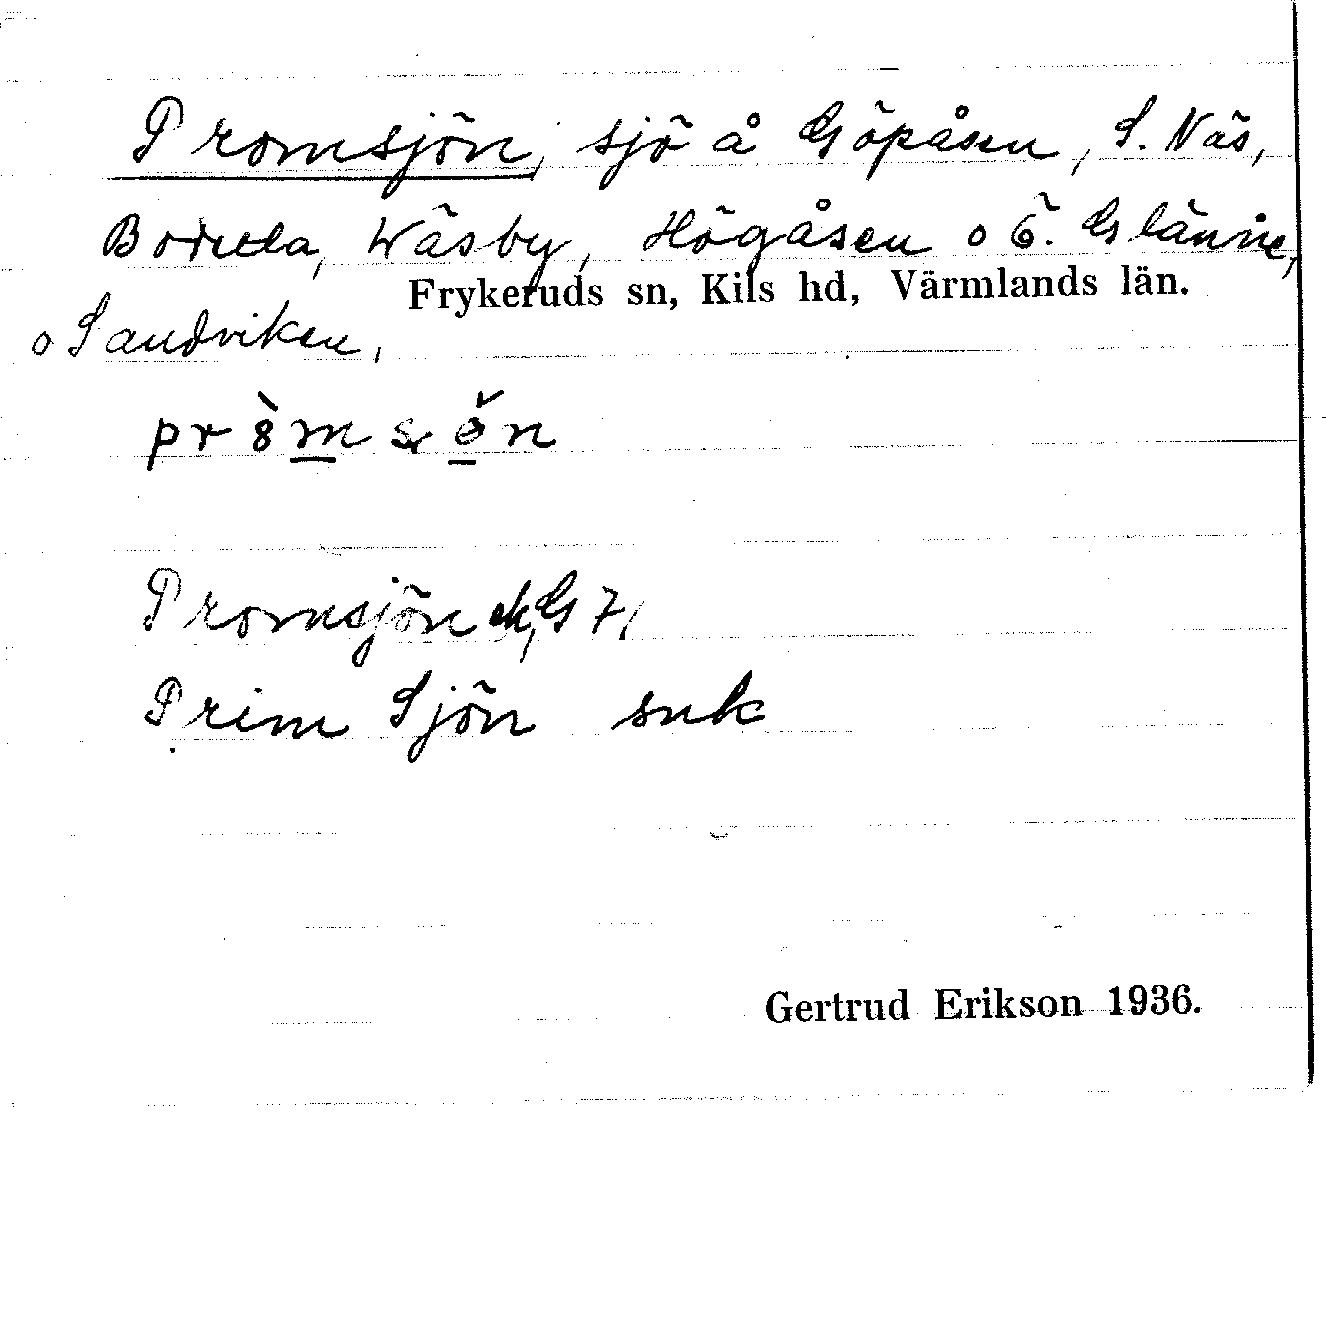 Promsjön, sjö å Göpåsen, S. Näs,
Wäsby, Högåsen o Ö. Glänne,
Frykeruds sn, Kils hd, Värmlands län.
o Sandviken,
Promsjön ek, G 7,
Prim Sjön snk
Gertrud Erikson 1936.